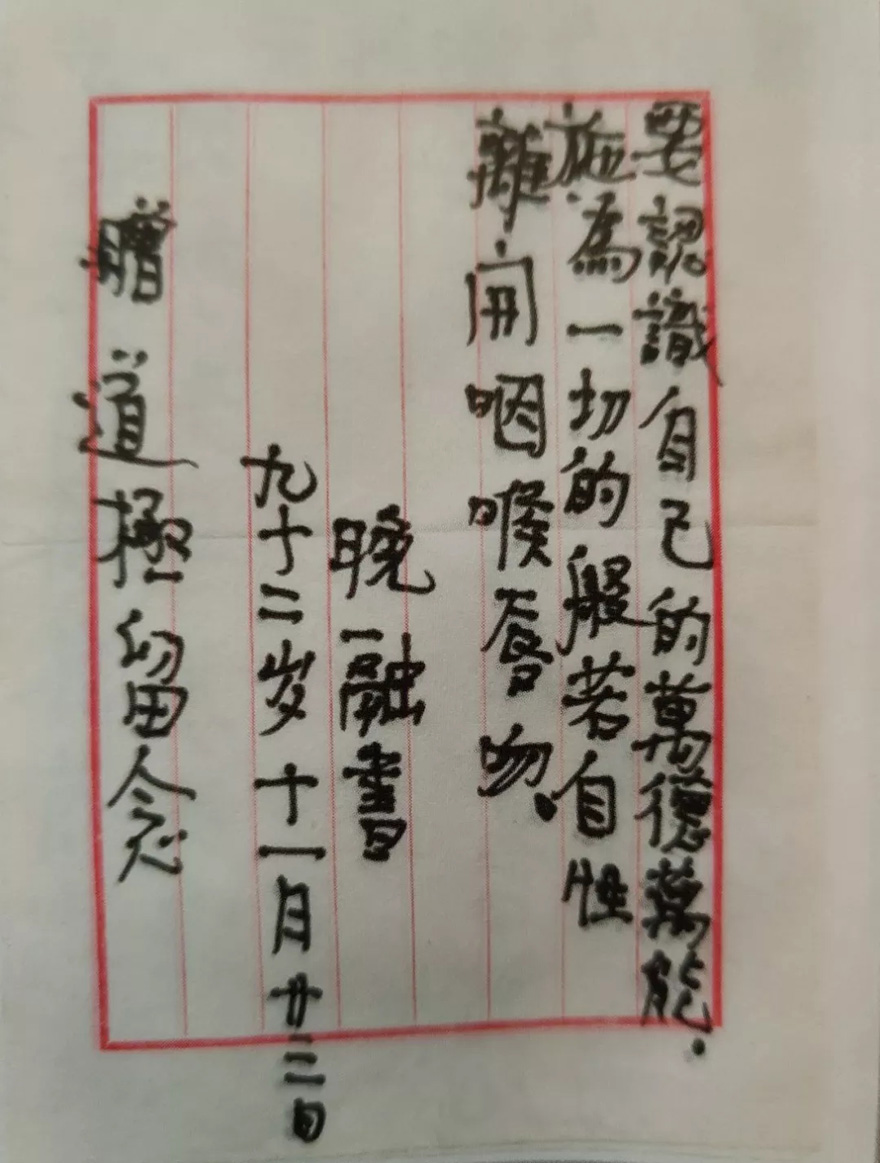 要認識自己的萬德萬能.
施為一切的般若自性
離開咽喉唇吻.
晚融書
九十二岁十一月廿二日
贈道極留念